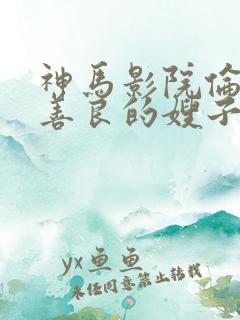 神馬影院倫
善良的嫂子
yx鱼鱼
未经同意禁止转载